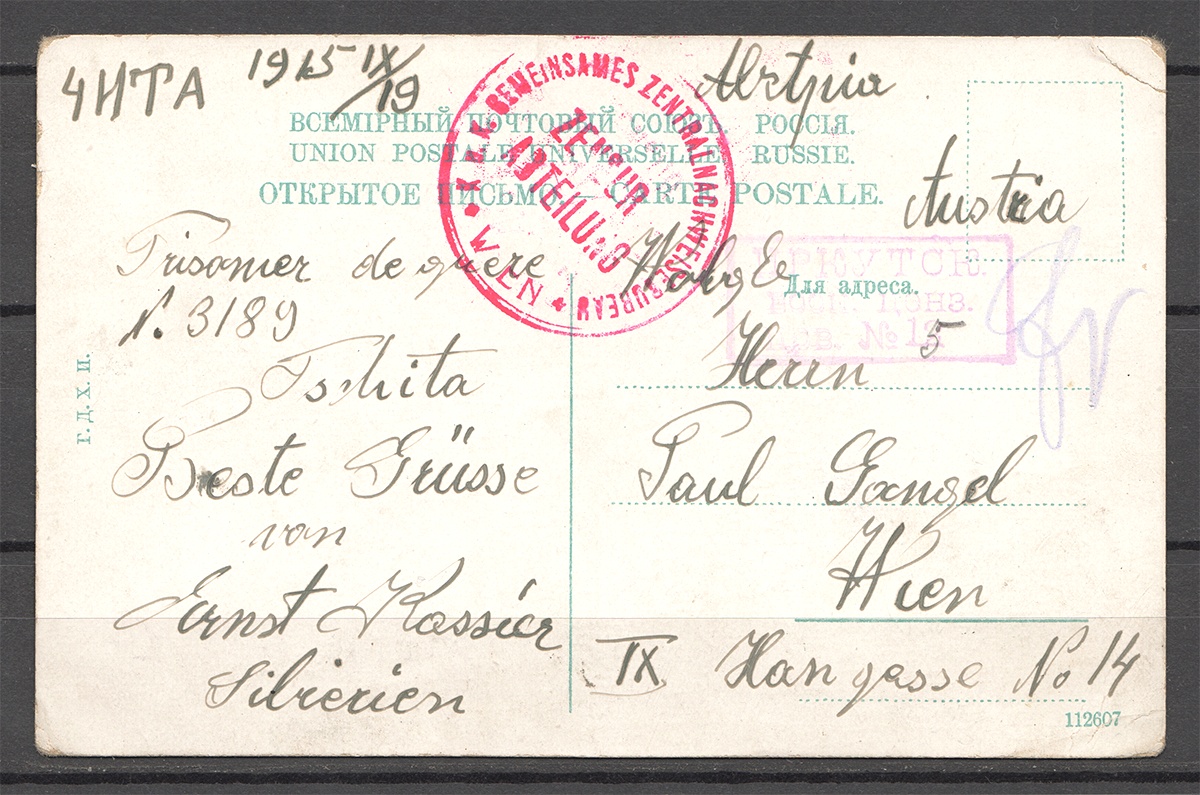 ЧИТА 1915 IX/19
Австрія
ВСЕМІРНЫЙ ПОЧТОВЫЙ СОЮЗЪ. РОССІЯ.
UNION POSTALE UNIVERSELLE. RUSSIE.
ОТКРЫТОЕ ПИСЬМО. — CARTE POSTALE.
K.u.K. GEMEINSAMES ZENTRALNACHWEISEBUREAU
ZENSUR
ABTEILUNG
* WIEN *
Austria
Prisonier de guere
N. 3189
Tschita
Beste Grüsse
von
Ernst Kassiér
Sibierien
Г. Д. Х. П.
ИРКУТСК.
ВОЕН. ЦЕНЗ.
№ 12
Для адреса.
5
Herrn
Paul Gangel
Wien
IX Hangasse No 14
112607